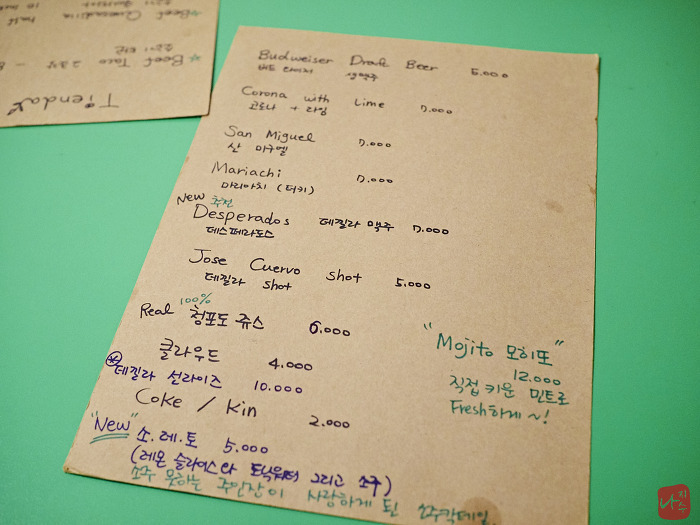 Budweiser Draft Beer 5.000
버드 와이저 생맥주
Corona with Lime 7.000
코로나 + 라임
San Miguel 7.000
산 미구엘
Mariachi 7.000
마리아치 (터키)
New 추천
Desperados 데낄라 맥주 7.000
데스페라도스
Jose Cuervo shot 5.000
데낄라 shot
100%
Real 청포도 쥬스 6.000
클라우드 4.000
데낄라 선라이즈 10.000
Coke / Kin 2.000
"New" 소.레.토 5.000
(레몬 슬라이스와 토닉워터 그리고 소주)
소주 못하는 주인장이 사랑하게 된 소주칵테일
"Mojito 모히또"
12.000
직접 키운 민트로
Fresh하게~!
Tienda
*Beef Taco